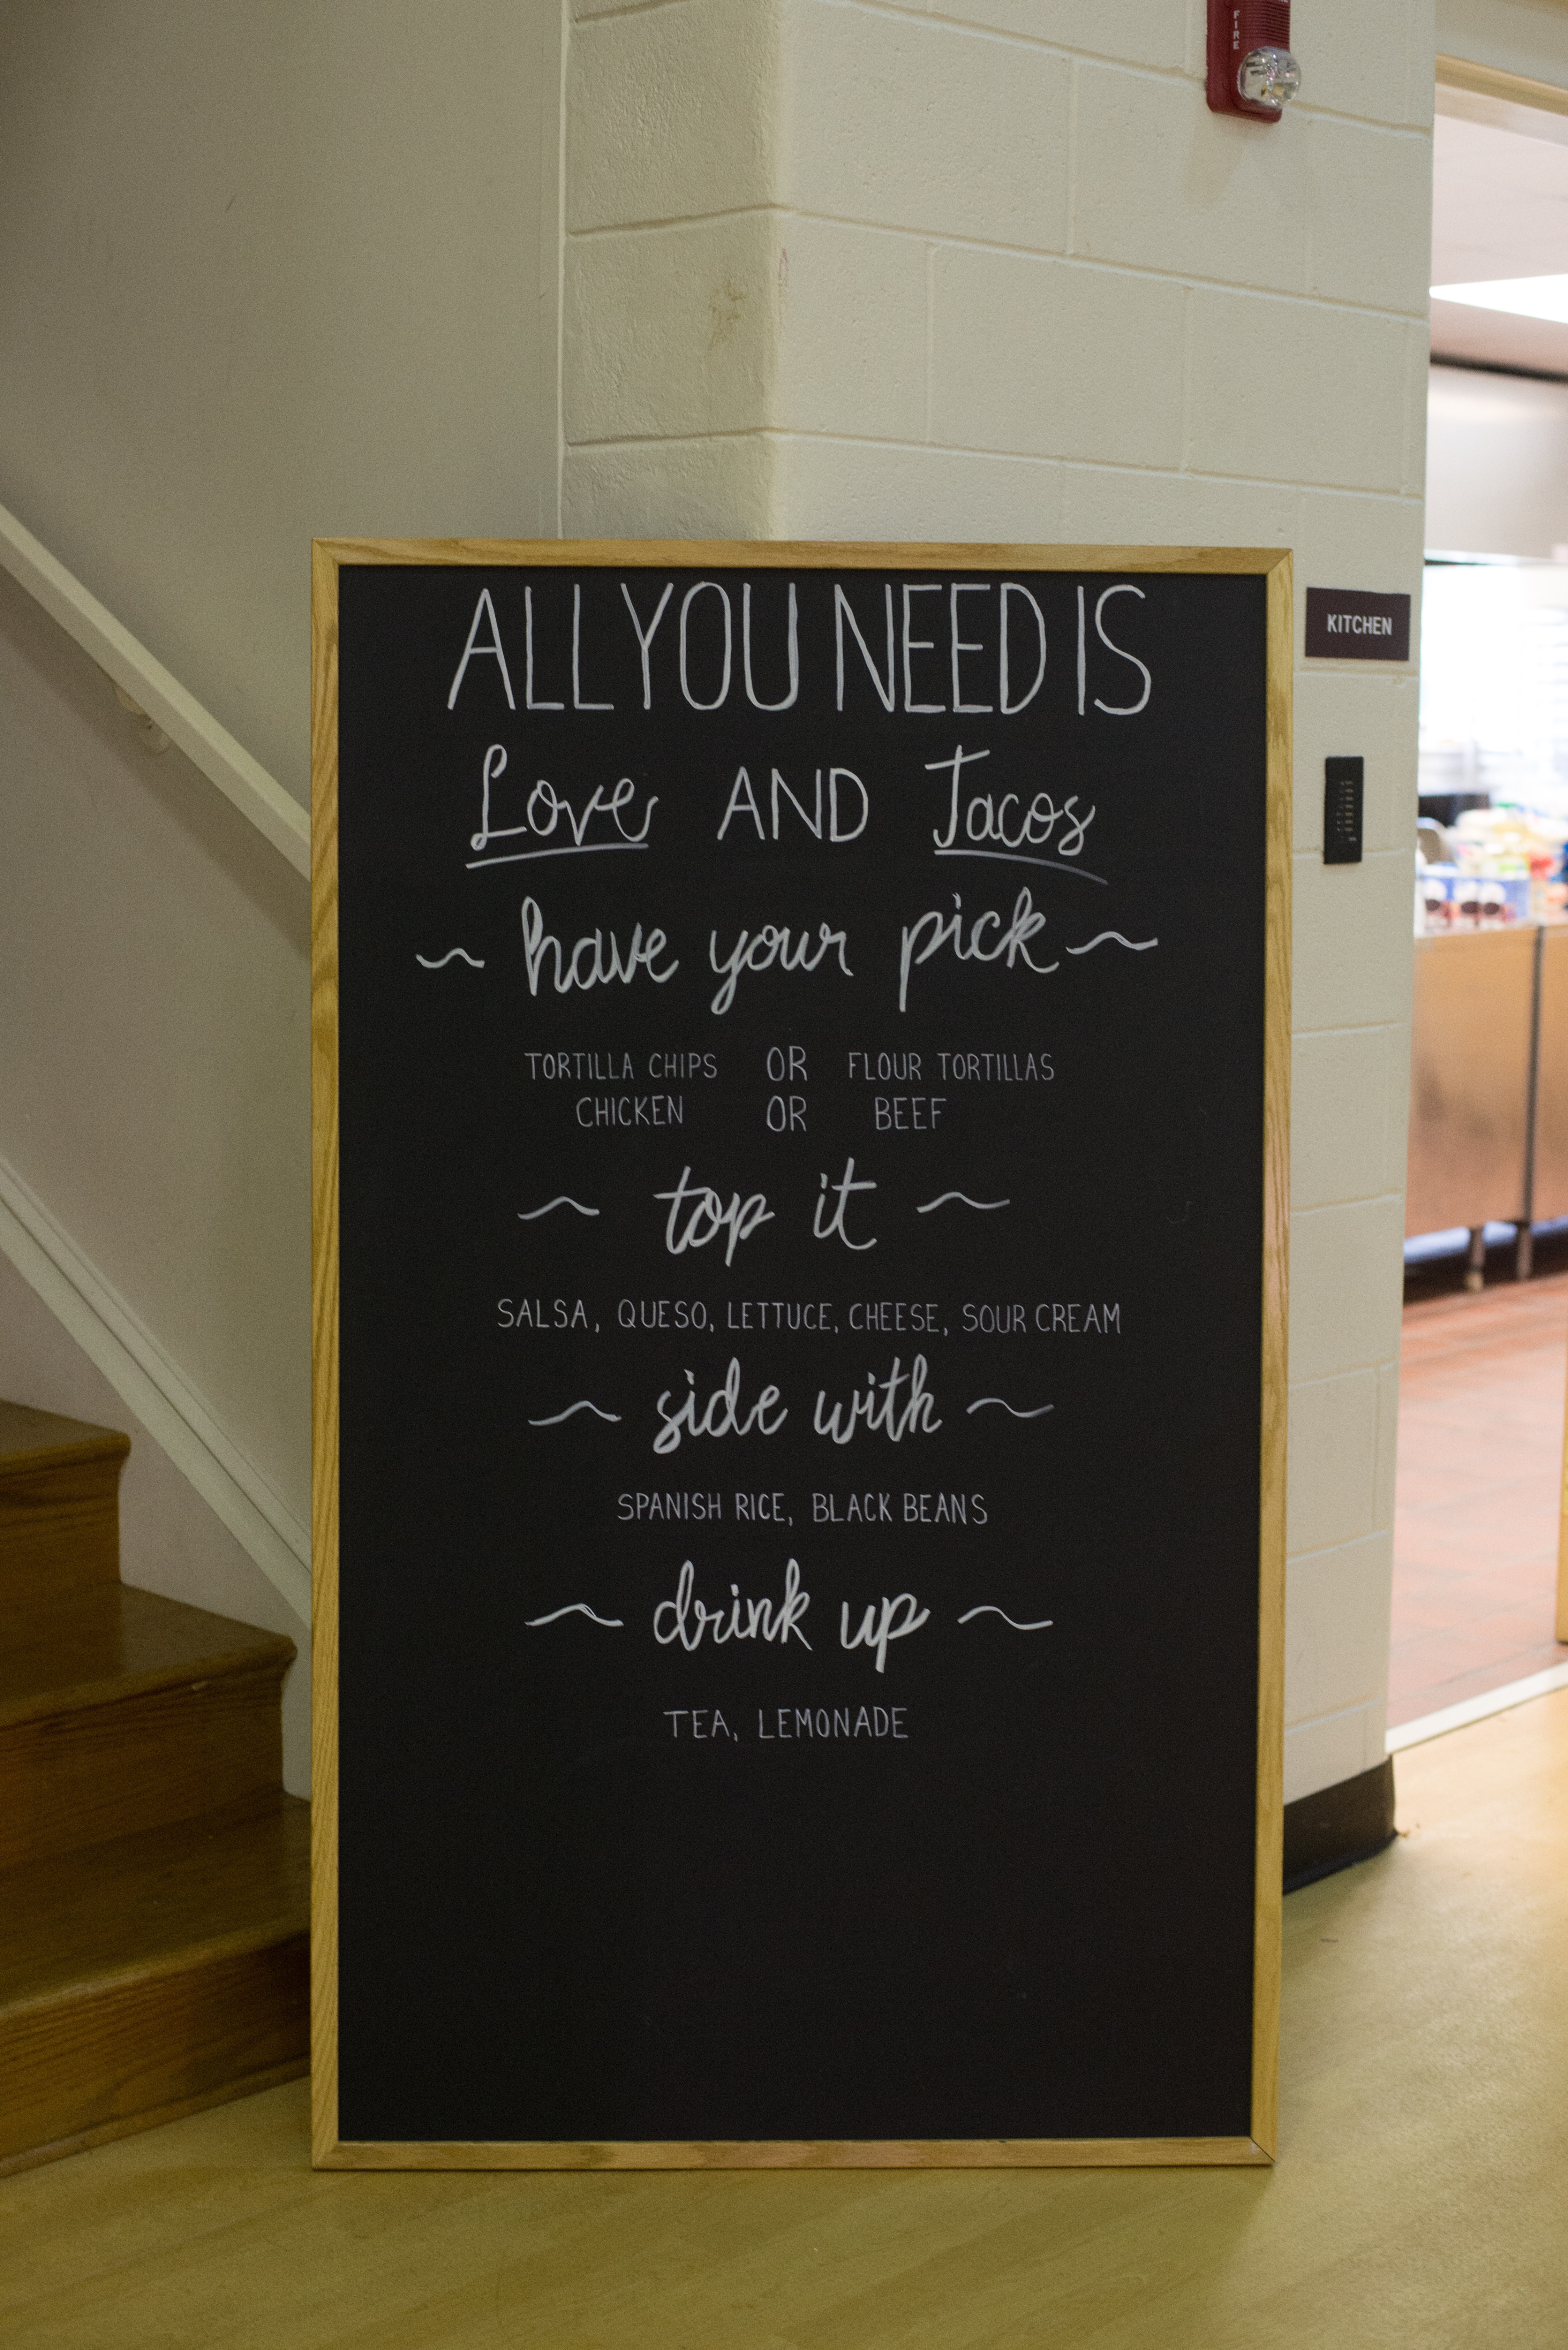 FIRE
ALL YOU NEED IS
KITCHEN
Love AND Tacos
~ have your pick ~
TORTILLA CHIPS OR FLOUR TORTILLAS
CHICKEN OR BEEF
~ top it ~
SALSA, QUESO, LETTUCE, CHEESE, SOUR CREAM
~ side with ~
SPANISH RICE, BLACK BEANS
~ drink up ~
TEA, LEMONADE